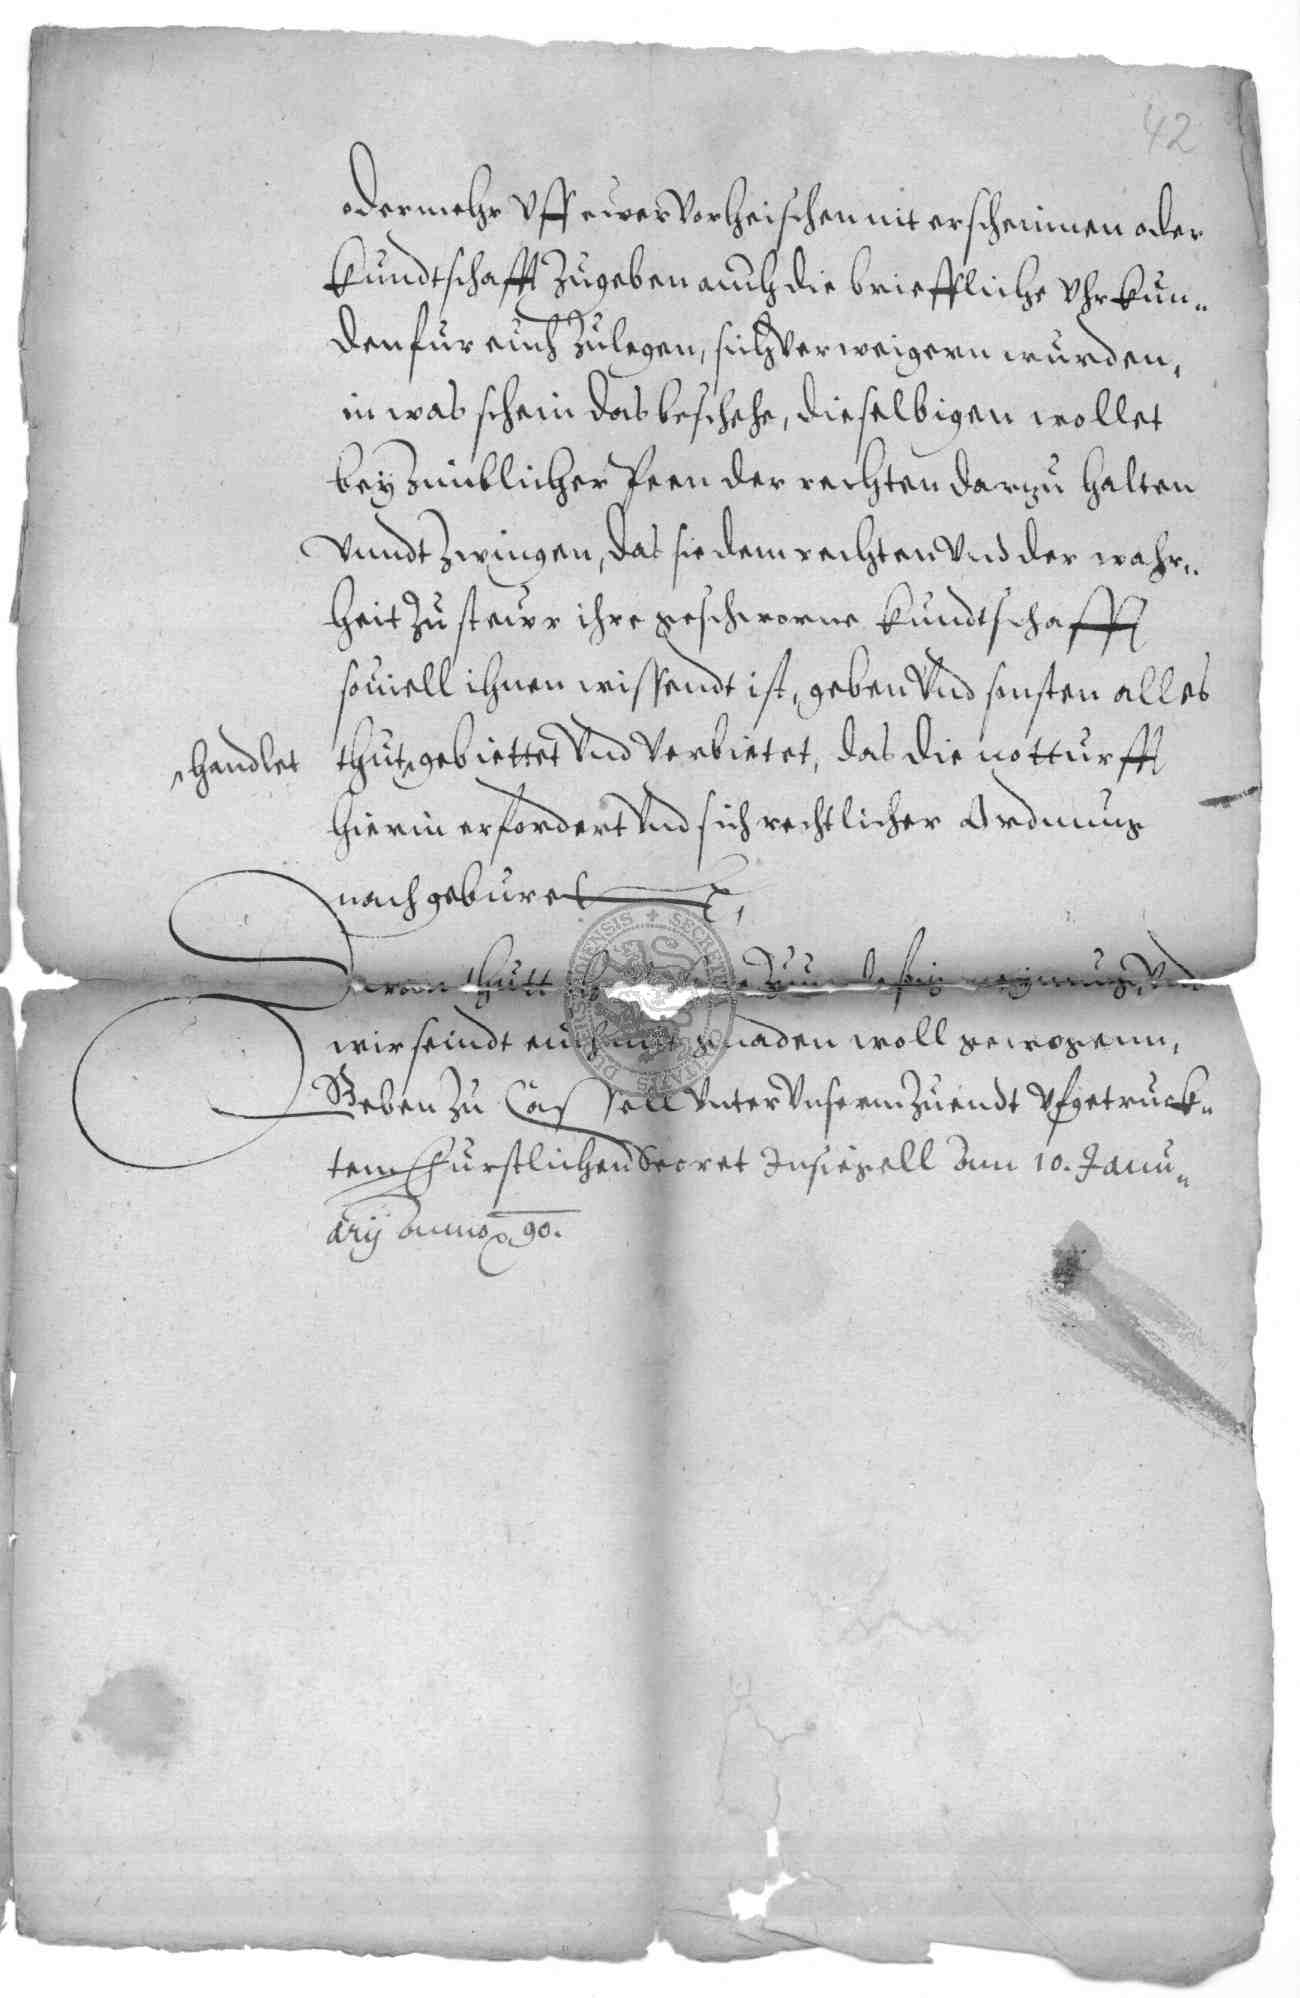 42
oder mehr Vff ewer Vorheischen nit erscheinnen oder
Kundtschafft Zugeben auch die brieffliche Vhrkun„
den fur euch Zulegen, sich Verweigern wurden,
in was schein das beschehe, dieselbigen wollet
bey zimblicher Peen der rechten darzu halten
Vnndt Zwingen, das sie dem rechten Vnd der wahr„
heit Zu steuer ihre geschworne Kundtschafft
souiell ihnen wissendt ist, geben Vnd sonsten alles
handlet thut, gebiettet Vnd Verbietet, das die notturfft
hierin erfordert Vnd sich rechtlicher Ordnung
nach geburet
Daran thutt Zuuerlesig meynung, Vnd
wir seindt euch mit gnaden woll gewogenn,
Geben Zu Cassell Vnter Vnserm Zu endt Vfgetruck„
tem Furstlichen Secret Insiegell am 10. Janu„
arij anno 90.
SECRETUM CIVITATIS DUDERSTADIENSIS